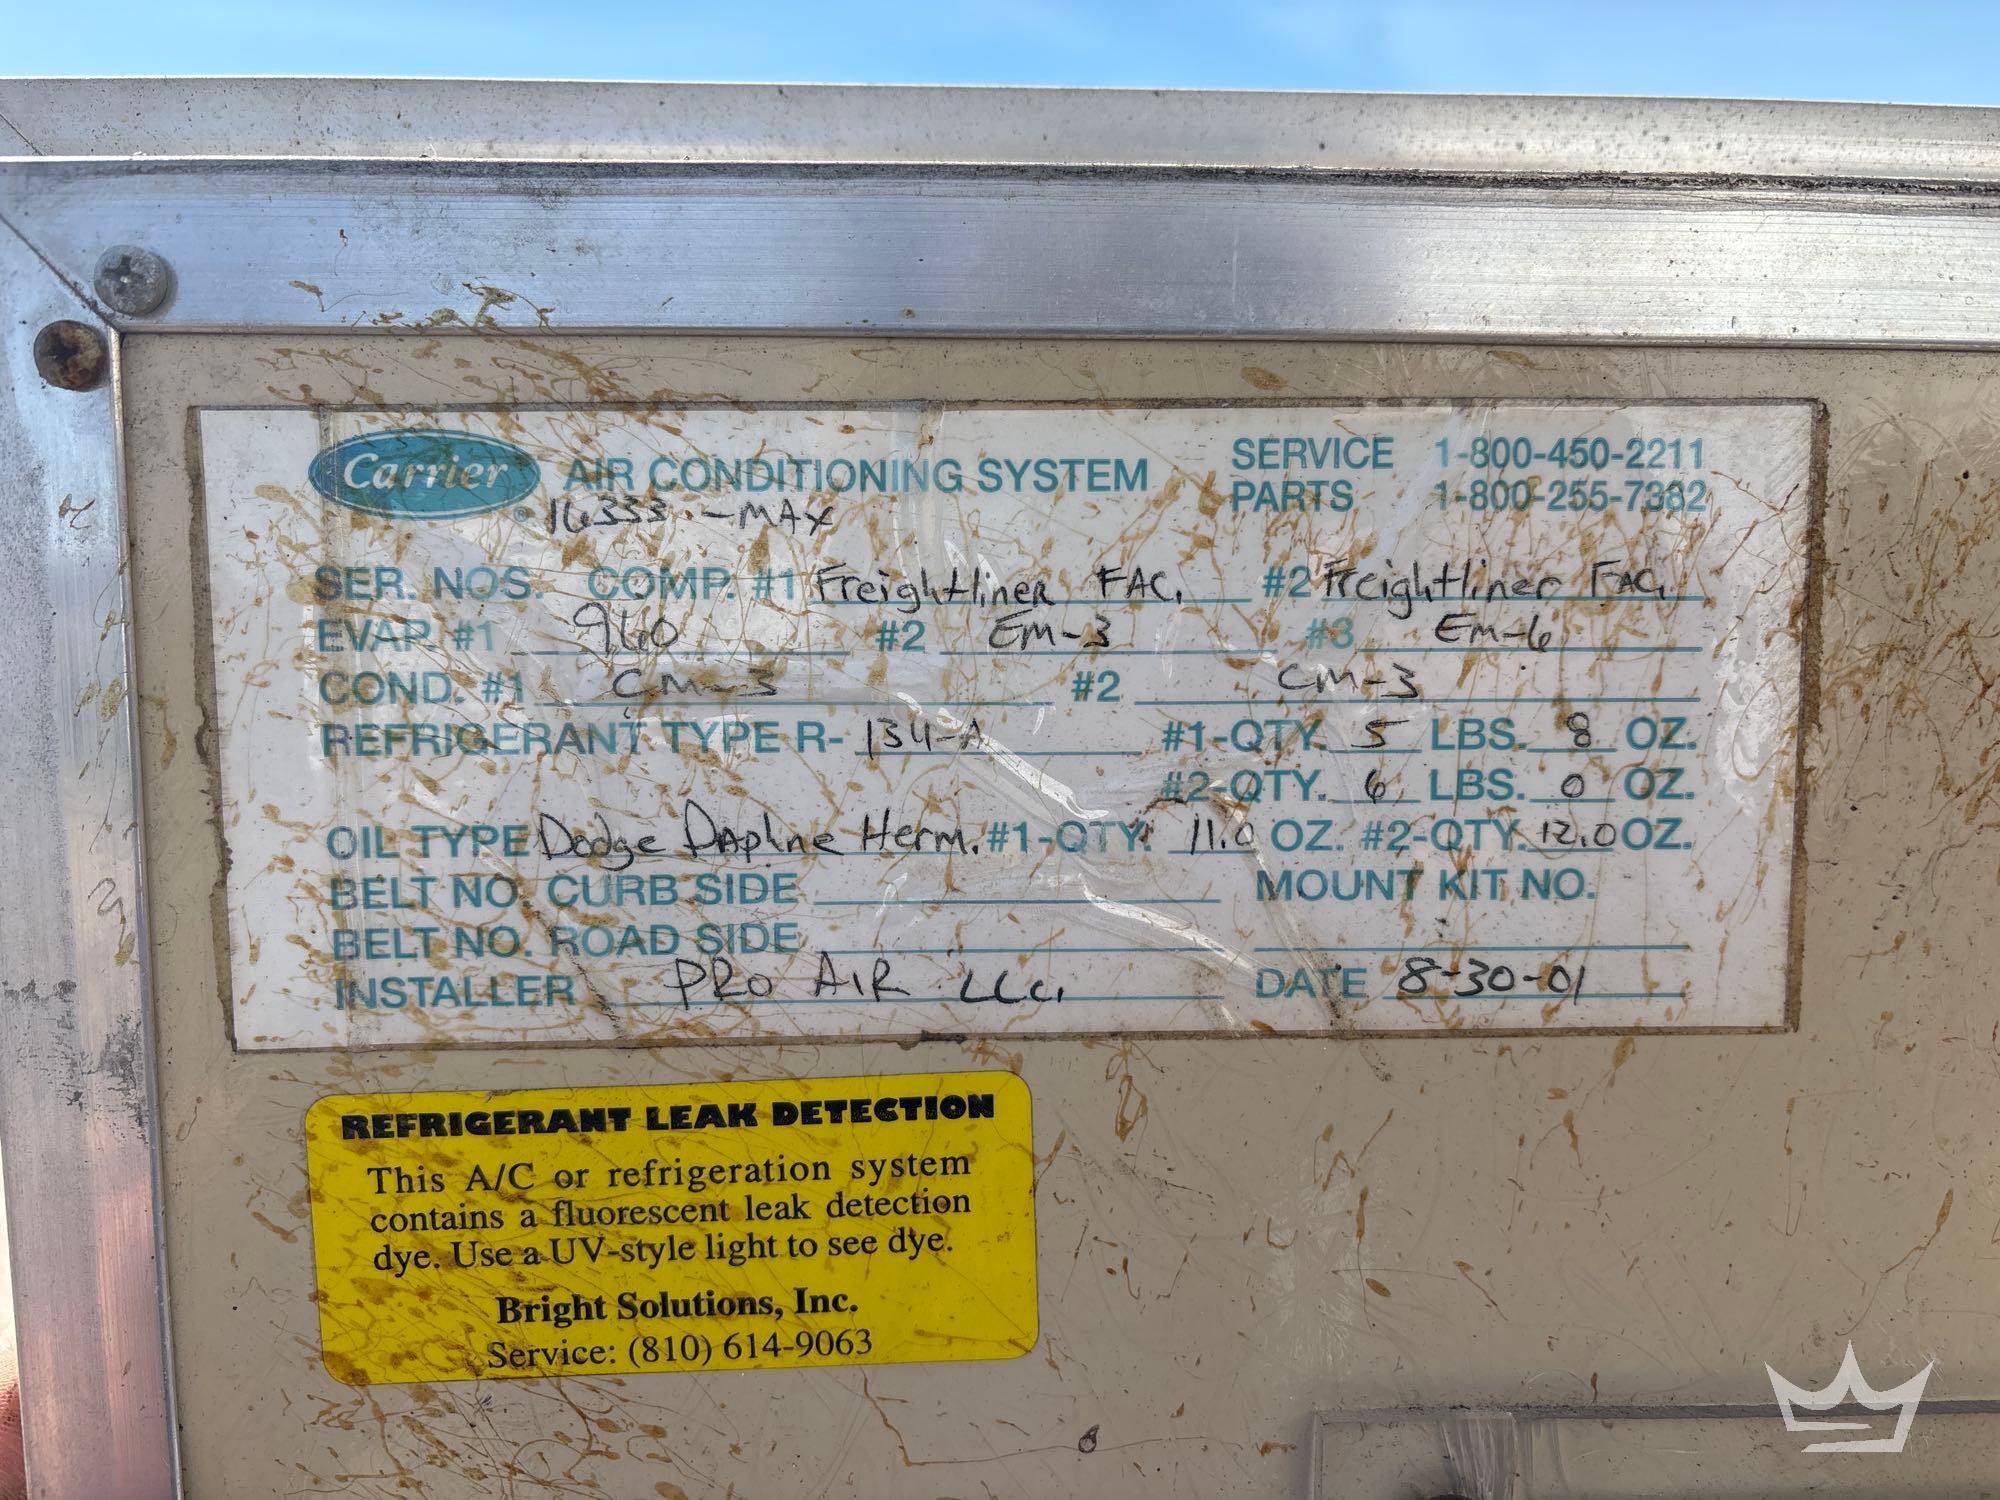 Carrier AIR CONDITIONING SYSTEM SERVICE 1-800-450-2211
PARTS 1-800-255-7382
16333 -MAX
SER. NOS. COMP. #1 Freightliner FAC. #2 Freightliner FAC.
EVAP. #1 960 #2 EM-3 #3 EM-6
COND. #1 CM-3 #2 CM-3
REFRIGERANT TYPE R- 134-A #1-QTY. 5 LBS. 8 OZ.
#2-QTY. 6 LBS. 0 OZ.
OIL TYPE Dodge Daphne Herm. #1-QTY. 11.0 OZ. #2-QTY. 12.0 OZ.
BELT NO. CURB SIDE MOUNT KIT NO.
BELT NO. ROAD SIDE
INSTALLER PRO AIR LLC. DATE 8-30-01
REFRIGERANT LEAK DETECTION
This A/C or refrigeration system
contains a fluorescent leak detection
dye. Use a UV-style light to see dye.
Bright Solutions, Inc.
Service: (810) 614-9063